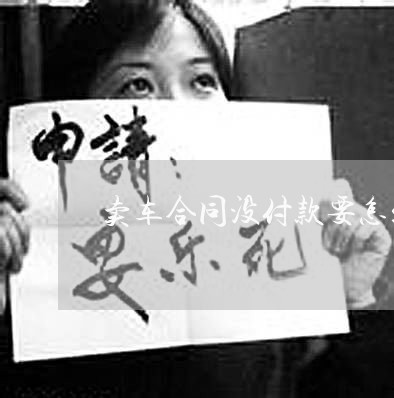 申請：
卖车合同没付款要怎
安乐死